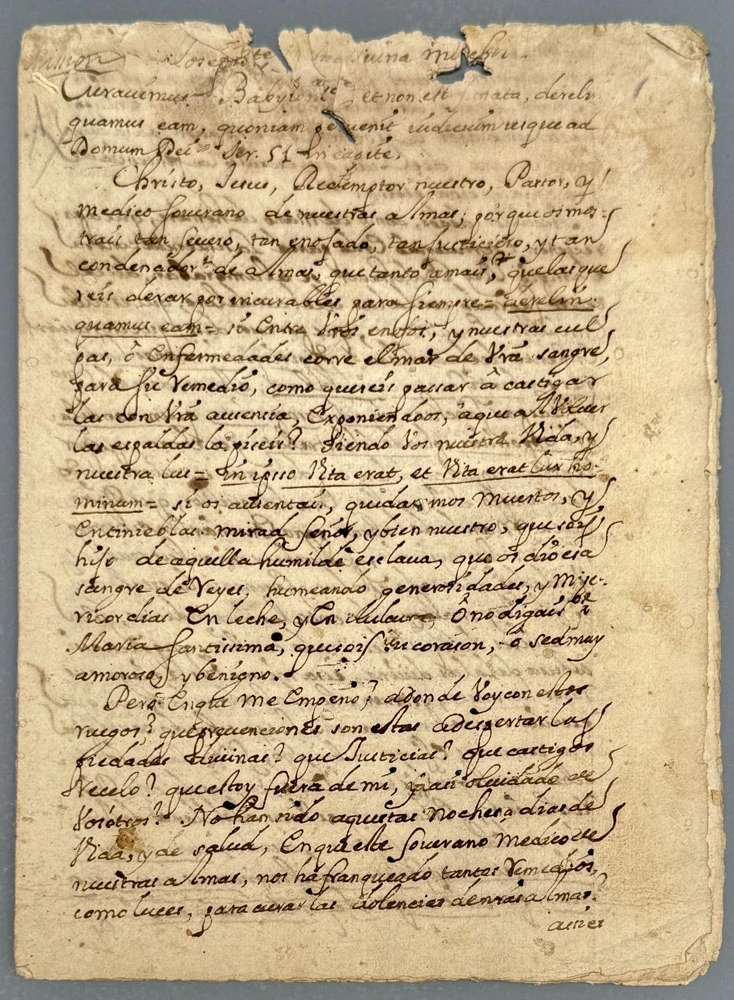 Curavimus Babylon et non est sanata, derelin
quamus eam, quoniam pervenit iudicium usque ad
Domum Dei Ier. 51 in capite.
Christo, Jesus, Redemptor nuestro, Pastor, y
medico soverano de nuestras almas; porque os mos-
trais tan severo, tan enojado, tan justiciero, y tan
condenador de almas, que tanto amais, que las que
reis dexar por incurables para siempre = derelin
quamus eam = si Entre Vos y nuestras cul
pas, ô Enfermedades corre el mar de Vrâ sangre,
para su remedio, como quereis passar â castigar
las con Vrâ ausencia, Exponiendoos, a que al Volver
las espaldas la piseis? Siendo Vos nuestra Vida, y
nuestra luz = In ipso Vita erat, et Vita erat lux ho-
minum = si os ausentais, quedaremos muertos, y
En tinieblas. mirad señor, y bien nuestro, que sois
hijo de aquella humilde esclava, que os dio esa
sangre de Reyes, humeando generosidades, y mise-
ricordias En leche, y En Ô no digais
Maria santissima, que sois su corason, ô sed muy
amoroso, y benigno.
Pero En que me Empeño? adonde Voy con estos
ruegos? que son estas a despertar las
piedades divinas? que Justicias? que castigos
Recelo? que estoy fuera de mi, y asi olvidado de
Vosotros? No han sido aquestas noches dias de
Vida, y de salud, En que este soverano medico de
nuestras almas, nos ha franqueado tantos remedios,
como luces, para curar las dolencias de nras almas?